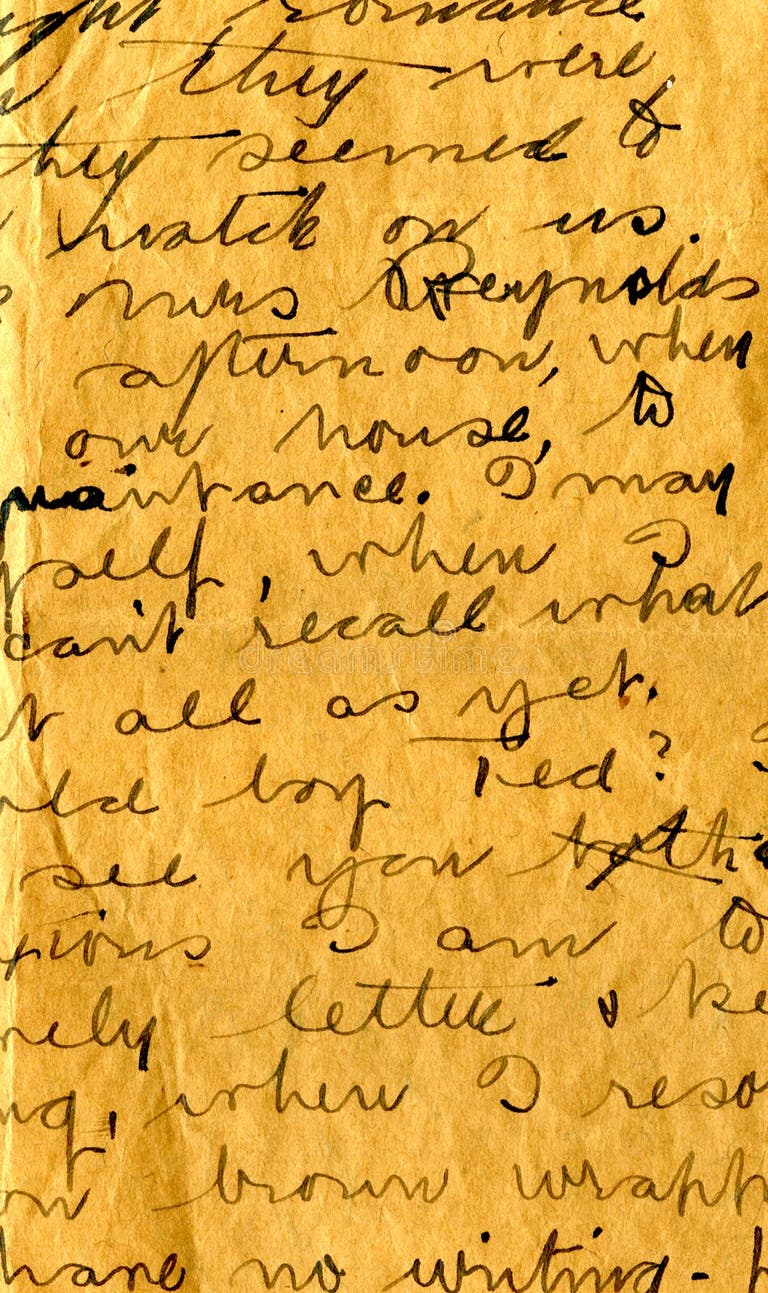 ght romance
they were
hey seemed to
watch on us.
mrs Reynolds
afternoon, when
our house, to
quaintance. I may
yself, when I
can't recall what
t all as yet.
old boy Ted?
see you
xious I am to
nely letter & ke
ng, when I reso
on brown wrapp
have no writing -
dreamstime.com